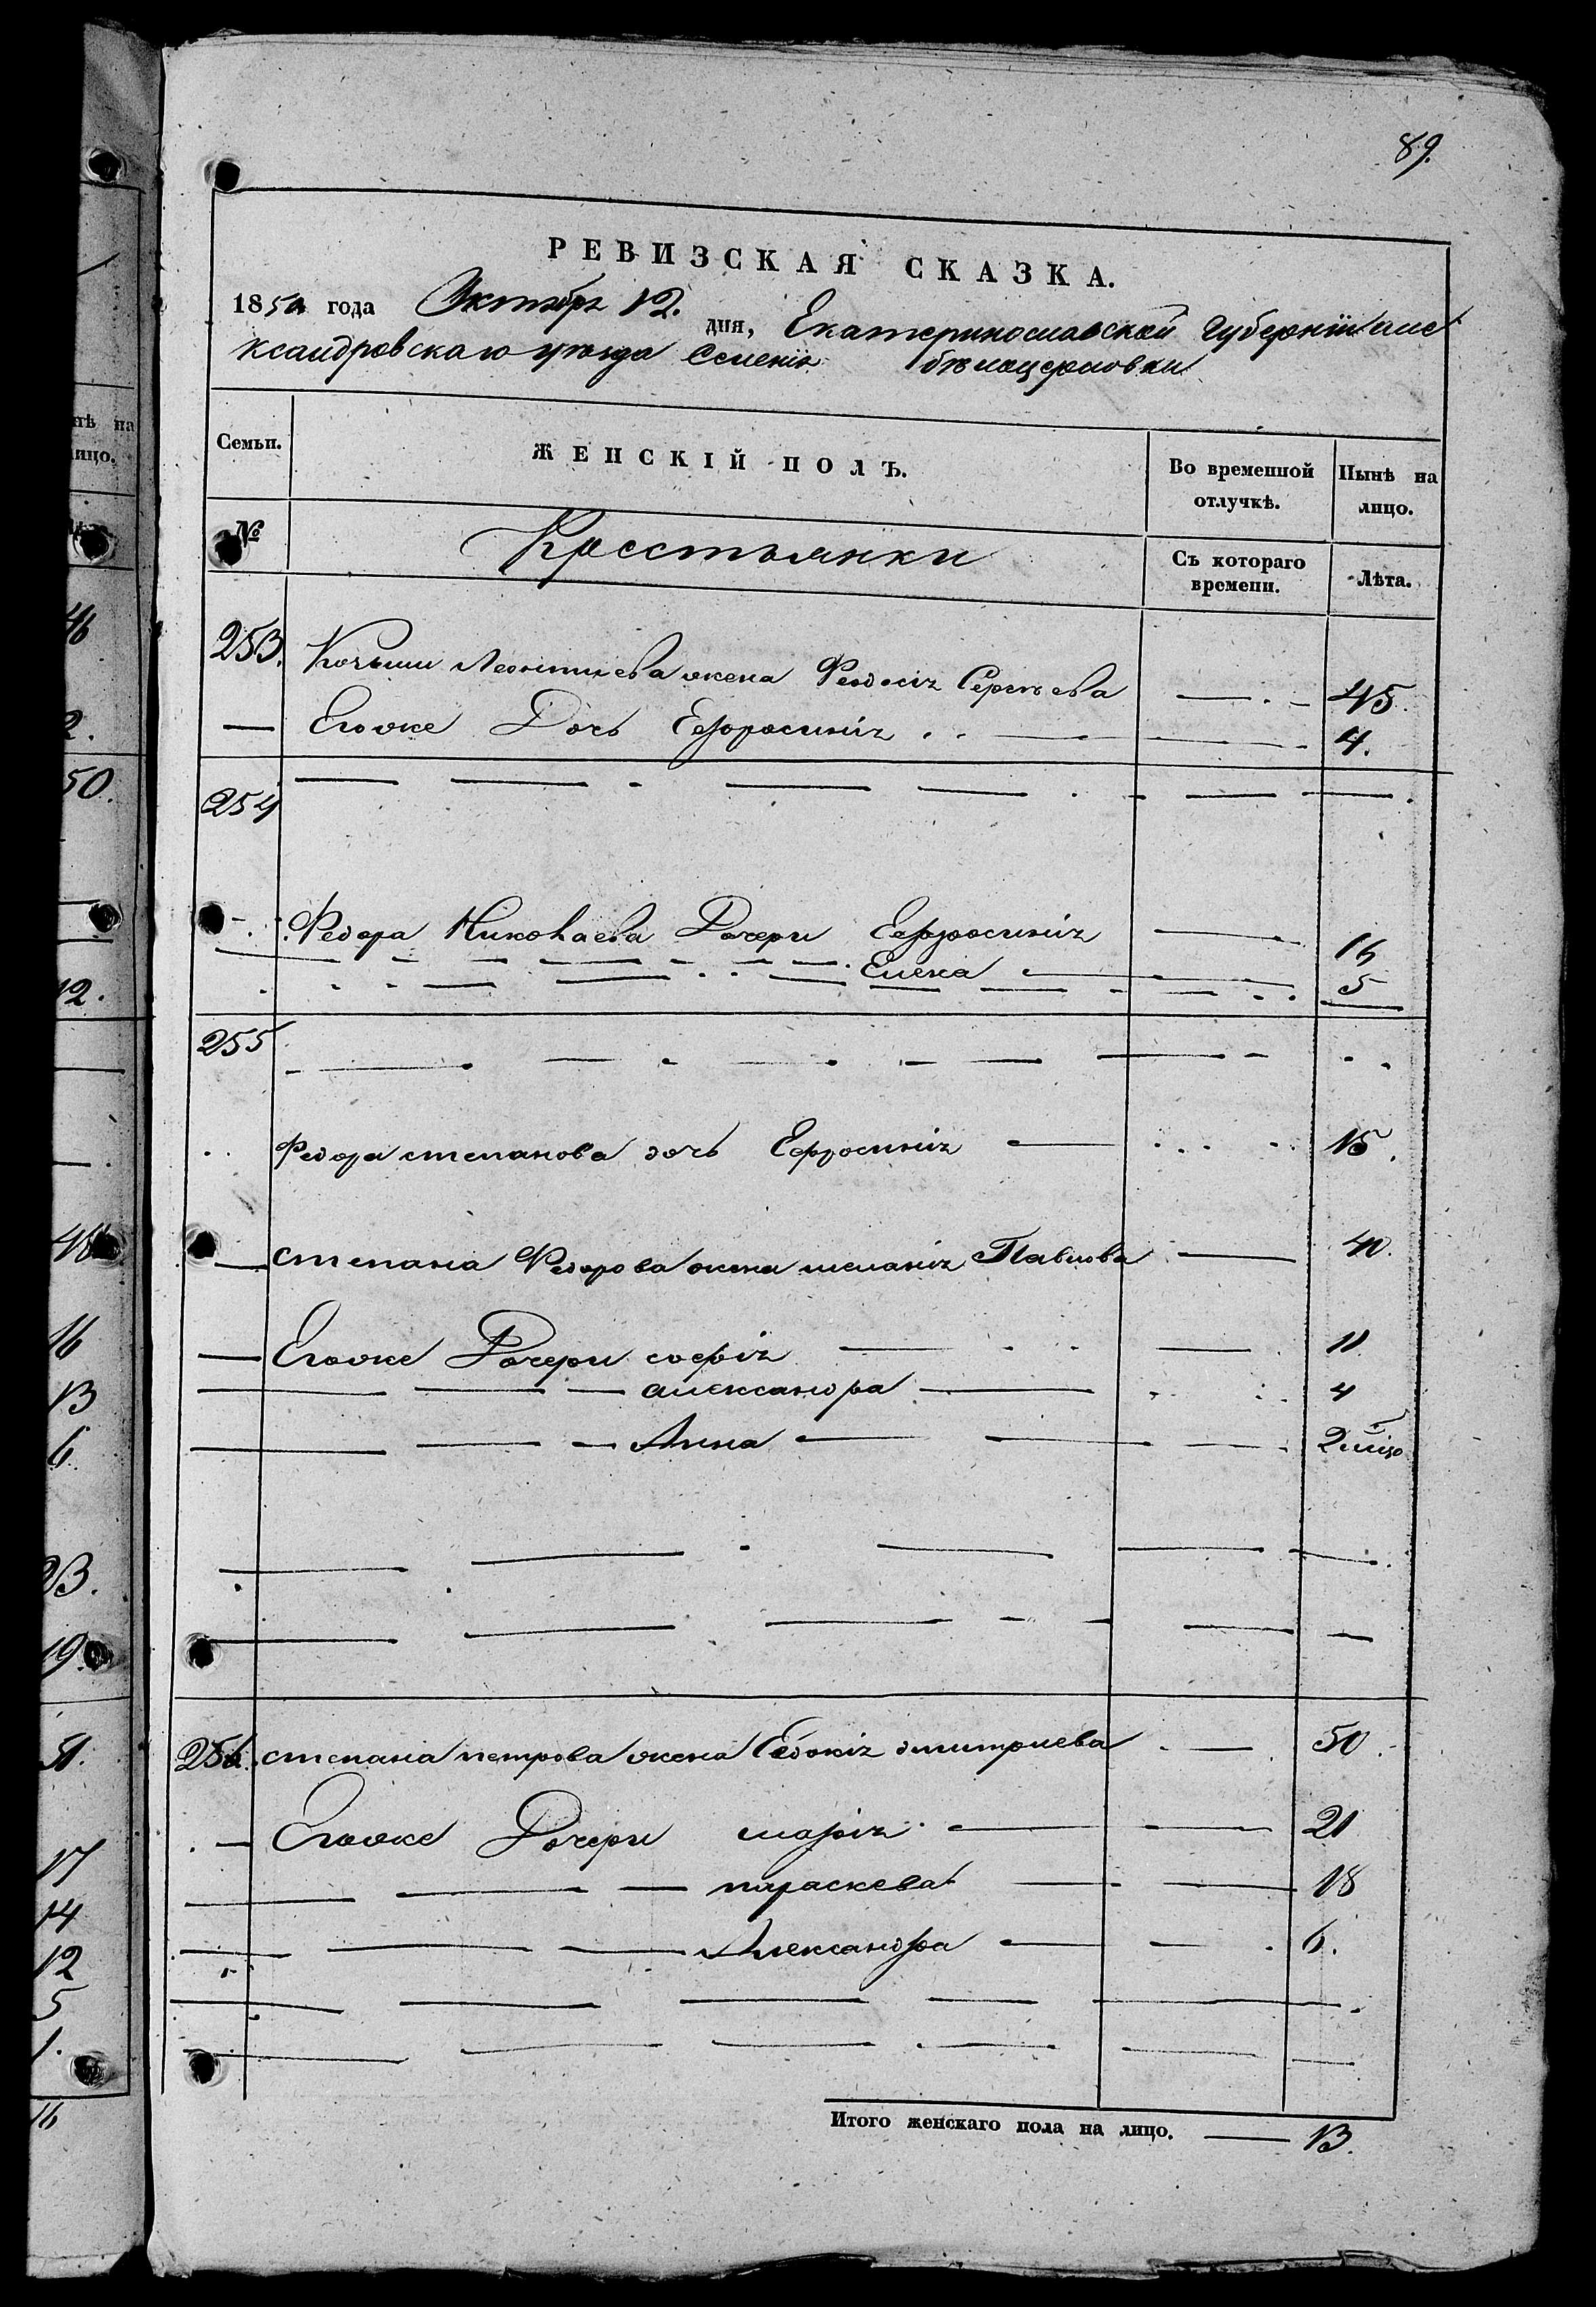 89.
РЕВИЗСКАЯ СКАЗКА.
1850 года Октября 12. дня, Екатеринославской Губернiи але
ксандровскаго уезда Селенiя бѣлоцерковки
Семьи. ЖЕНСКIЙ ПОЛЪ. Во временной отлучкѣ. Нынѣ на лицо.
№ Крестьянки Съ котораго времени. Лѣта.
253. Леонтиева жена Феодосiя Сергѣева 45
Егоже Дочь Ефросинiя 4.
254
Федора Николаева Дочери Ефросинiя 16
Елена 5
255
Федора степанова дочь Ефросинiя 15.
степана Федорова жена меланiя Павлова 40.
Егоже Дочери софiя 11
александра 4
Анна 2 мѣся
256. степана петрова жена Евдокiя дмитриева 50.
Егоже Дочери марiя 21
параскева 18
Александра 6.
Итого женскаго пола на лицо. 13.
нѣ на
лицо.
46
2.
50.
12.
48
16
13
6
23.
19.
51.
17
14
12
5
1.
16